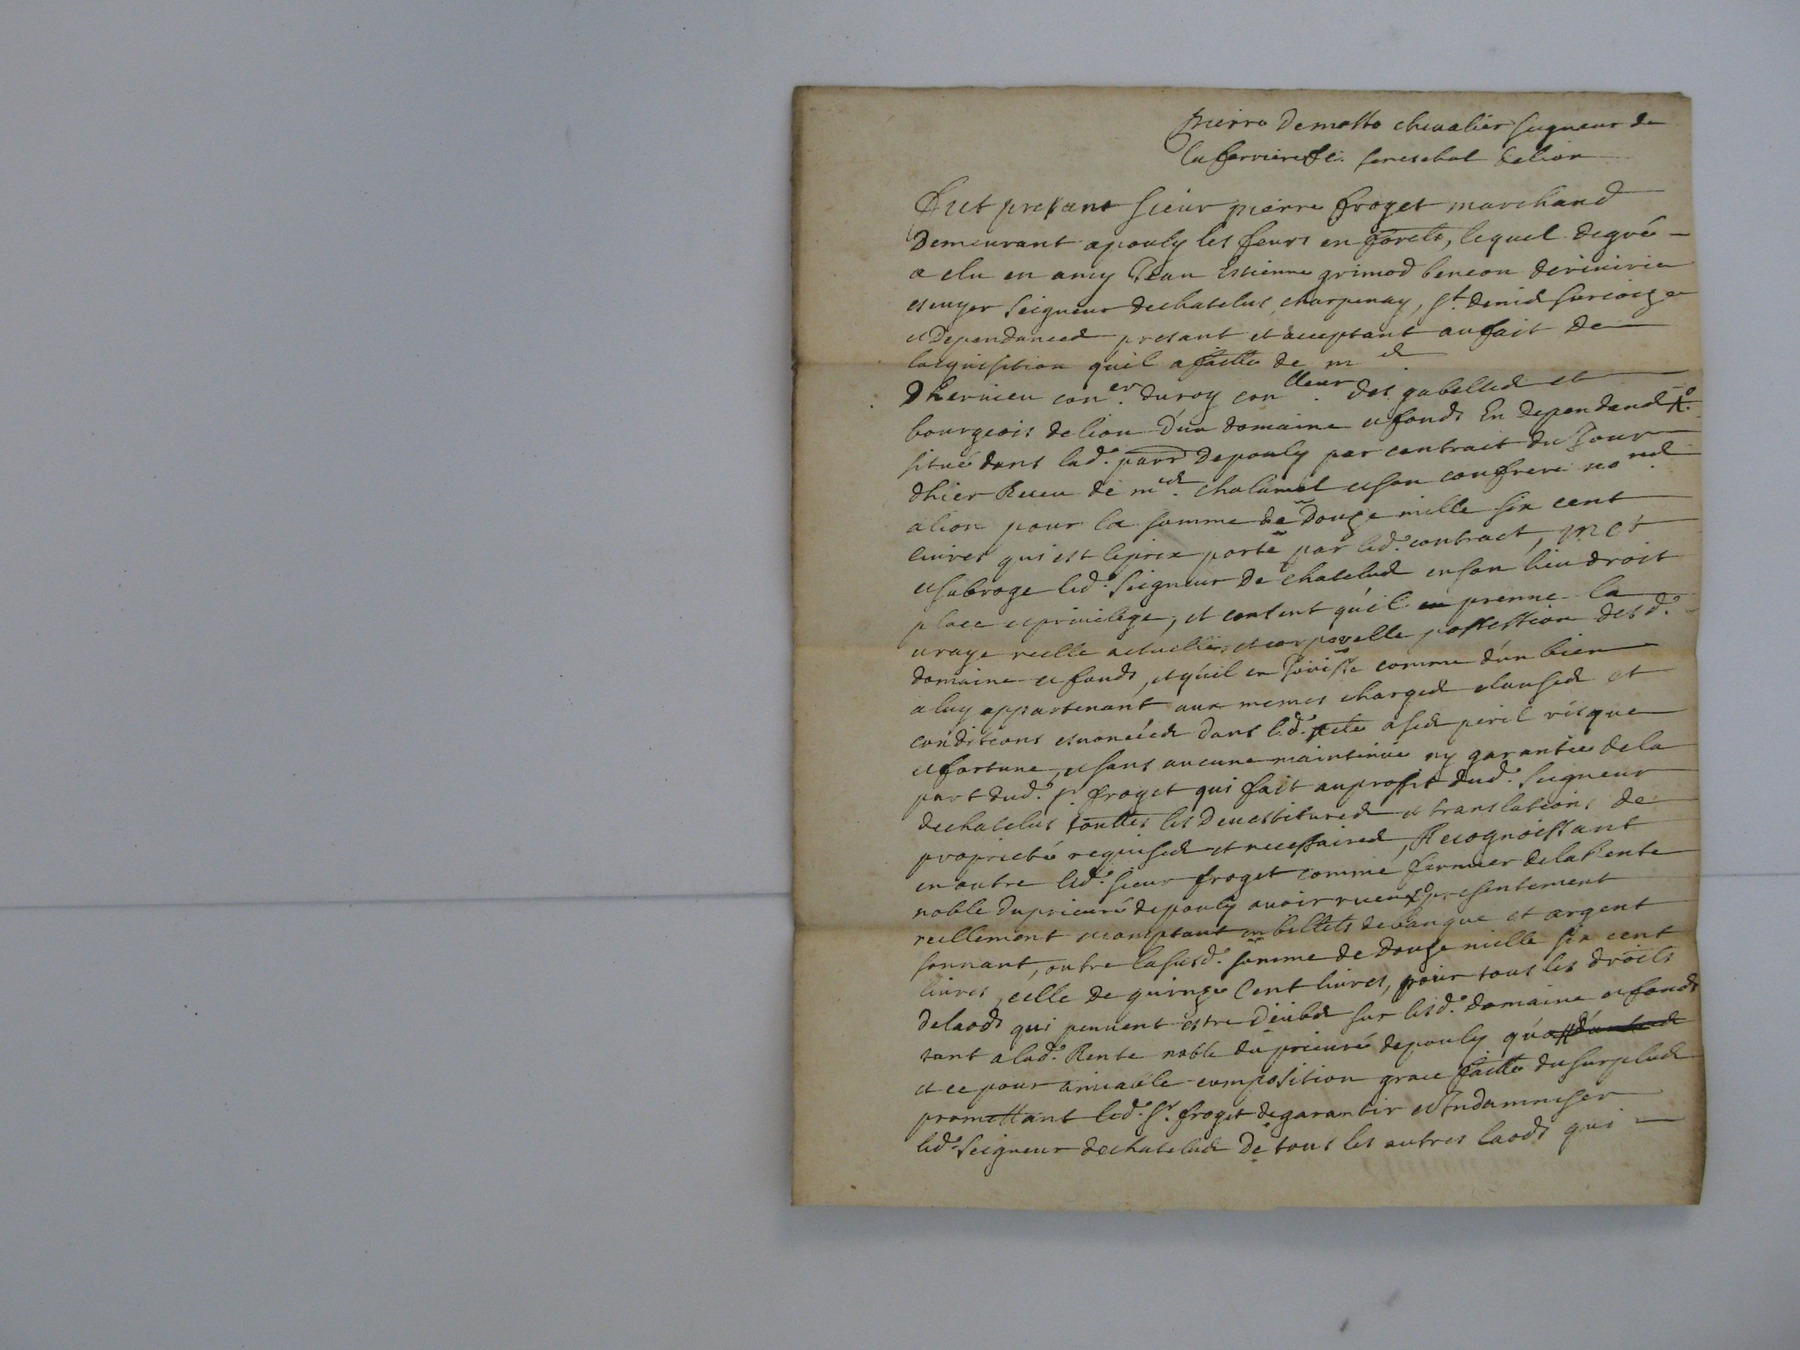 pierre demasso chevalier seigneur de
la ferriere &c. seneschal de lion
Fut present sieur pierre froget marchand
demeurant a pouly les feurs en forets, lequel de gré
a elu en amy Jean Estienne grimod beneon de riverie
escuyer seigneur de chatelus, charpenay, st. denis sur coize
et dependances present et acceptant au fait de
lacquisition quil a faitte de m
Dhervieu coner. du roy conlleur. des gabelles et
bourgeois de lion d'un domaine et fonds En dependands
situé dans lad. parr depouly par contrait du Jour
dhier Receu de mes. chalumel et son confrere nores.
a lion pour la somme de Douze mille six cent
livres qui est le prix porté par led. contract, met
et subroge led. Seigneur de chatelus en son lieu droit
place et privilege, et consent qu'il prenne la
vraye reelle actuelle et corporelle possession desd.
domaine et fonds, et qu'il en Jouisse comme d'un bien
a luy appartenant aux memes charges clauses et
conditions enoncées dans led. acte a ses peril risque
et fortune, et sans aucune maintenüe ny garantie de la
part dud. sr. froget qui fait au profit dud. Seigneur
de chatelus touttes les Devestitures et translations de
proprieté requises et necessaires, Recognoissant
en outre led. sieur froget comme fermier de la Rente
noble du prieuré depouly avoir receu presentement
reellement et comptant en billets de banque et argent
sonnant, outre la susd. somme de Douze mille six cent
livres, celle de quinze Cent livres, pour tous les droits
de laods qui peuvent estre deubs sur lesd. domaine et fonds
tant a lad. Rente noble du prieuré depouly qu'a
et ce pour amiable composition grace faitte du surplus
promettant led. Sr. froget de garantir et Indamniser
led. Seigneur de chatelus De tous les autres laods qui